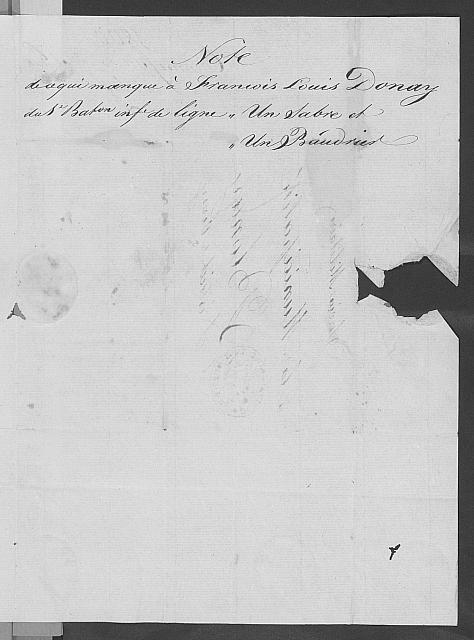 Note
de ce qui manque à Francois Louis Donay
du 1r Baton infie de ligne „ Un Sabre et
„ Un Baudrier